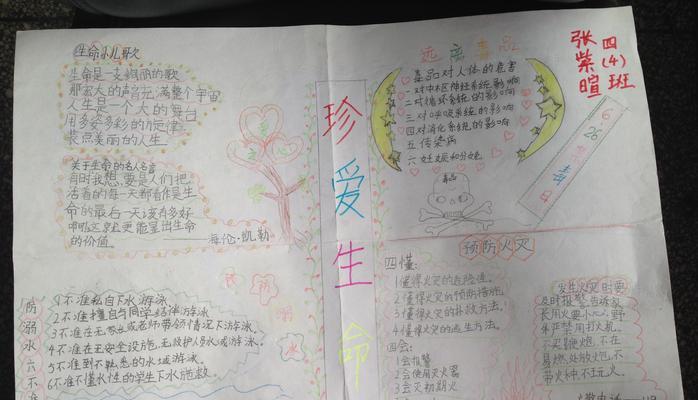 生命小儿歌
生命是一支绚丽的歌
那宏大的声音充满整个宇宙
人生是一个大的舞台
用多姿多彩的旋律
装点美丽的人生
关于生命的名人名言
有时我想,要是人们把
活着的每一天都看作是生
命的最后一天该有多好
啊!这就更能显出生命
的价值。 ——海伦·凯勒
防溺水六不准
1不准私自下水游泳
2不准擅自与同学结伴游泳
3不准在无家长或老师带领情况下游泳。
4不准在无安全设施,无救护人员水域游泳。
5不准到不熟悉的水域游泳。
6不准不懂水性的学生下水施救
预防溺水
珍爱生命
远离毒品
毒品对人体的危害
一对中枢神经系统影响
二对循环系统的影响
三对呼吸系统的影响
四对消化系统的影响
五传染病
六妊娠和分娩
毒品
四(4)班
张紫暄
6.26禁毒日
预防火灾
四懂:
1懂得火灾的危险性。
2懂得火灾的预防措施。
3懂得火灾的扑救方法。
4懂得火灾的逃生方法。
四会:
1会报警
2会使用灭火器
3会灭初期火
发生火灾时要
及时报警告诉家
长用火要小心,野
外严禁用打火机。
不买鞭炮,不在
易燃处放炮,不
带火种,不玩火。
火警电话—119